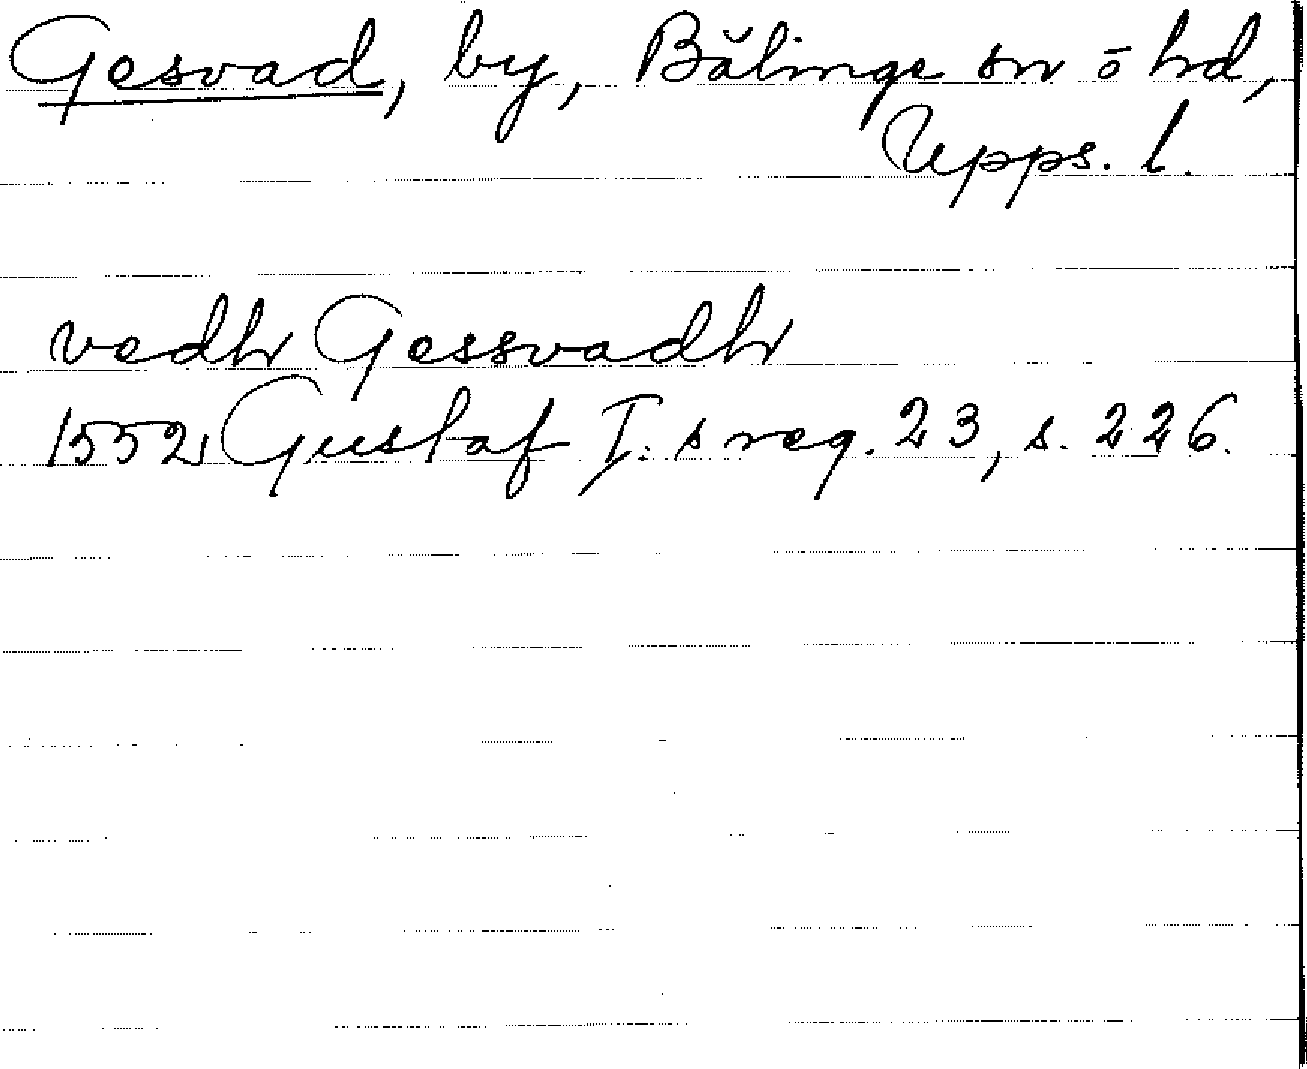 Gesvad, by, Bälinge sn o hd,
Upps. l.
vedh Gessvadh
1552 Gustaf I:s reg. 23, s. 226.